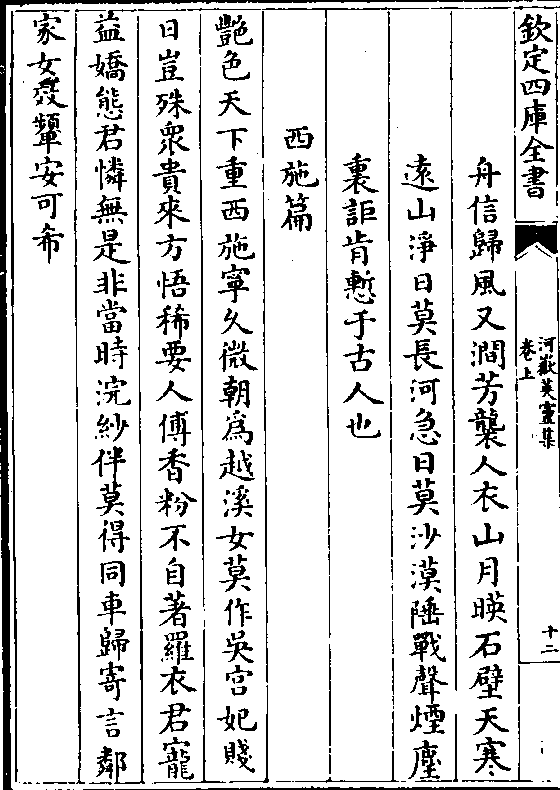 欽定四庫全書
河嶽英靈集
卷上
十二
舟信歸風又澗芳襲人衣山月映石壁天寒
遠山淨日莫長河急日莫沙漠陲戰聲煙塵
裏詎肯慙于古人也
西施篇
艷色天下重西施寧久微朝為越溪女莫作吳宮妃賤
日豈殊衆貴來方悟稀要人傅香粉不自著羅衣君寵
益嬌態君憐無是非當時浣紗伴莫得同車歸寄言鄰
家女效顰安可希